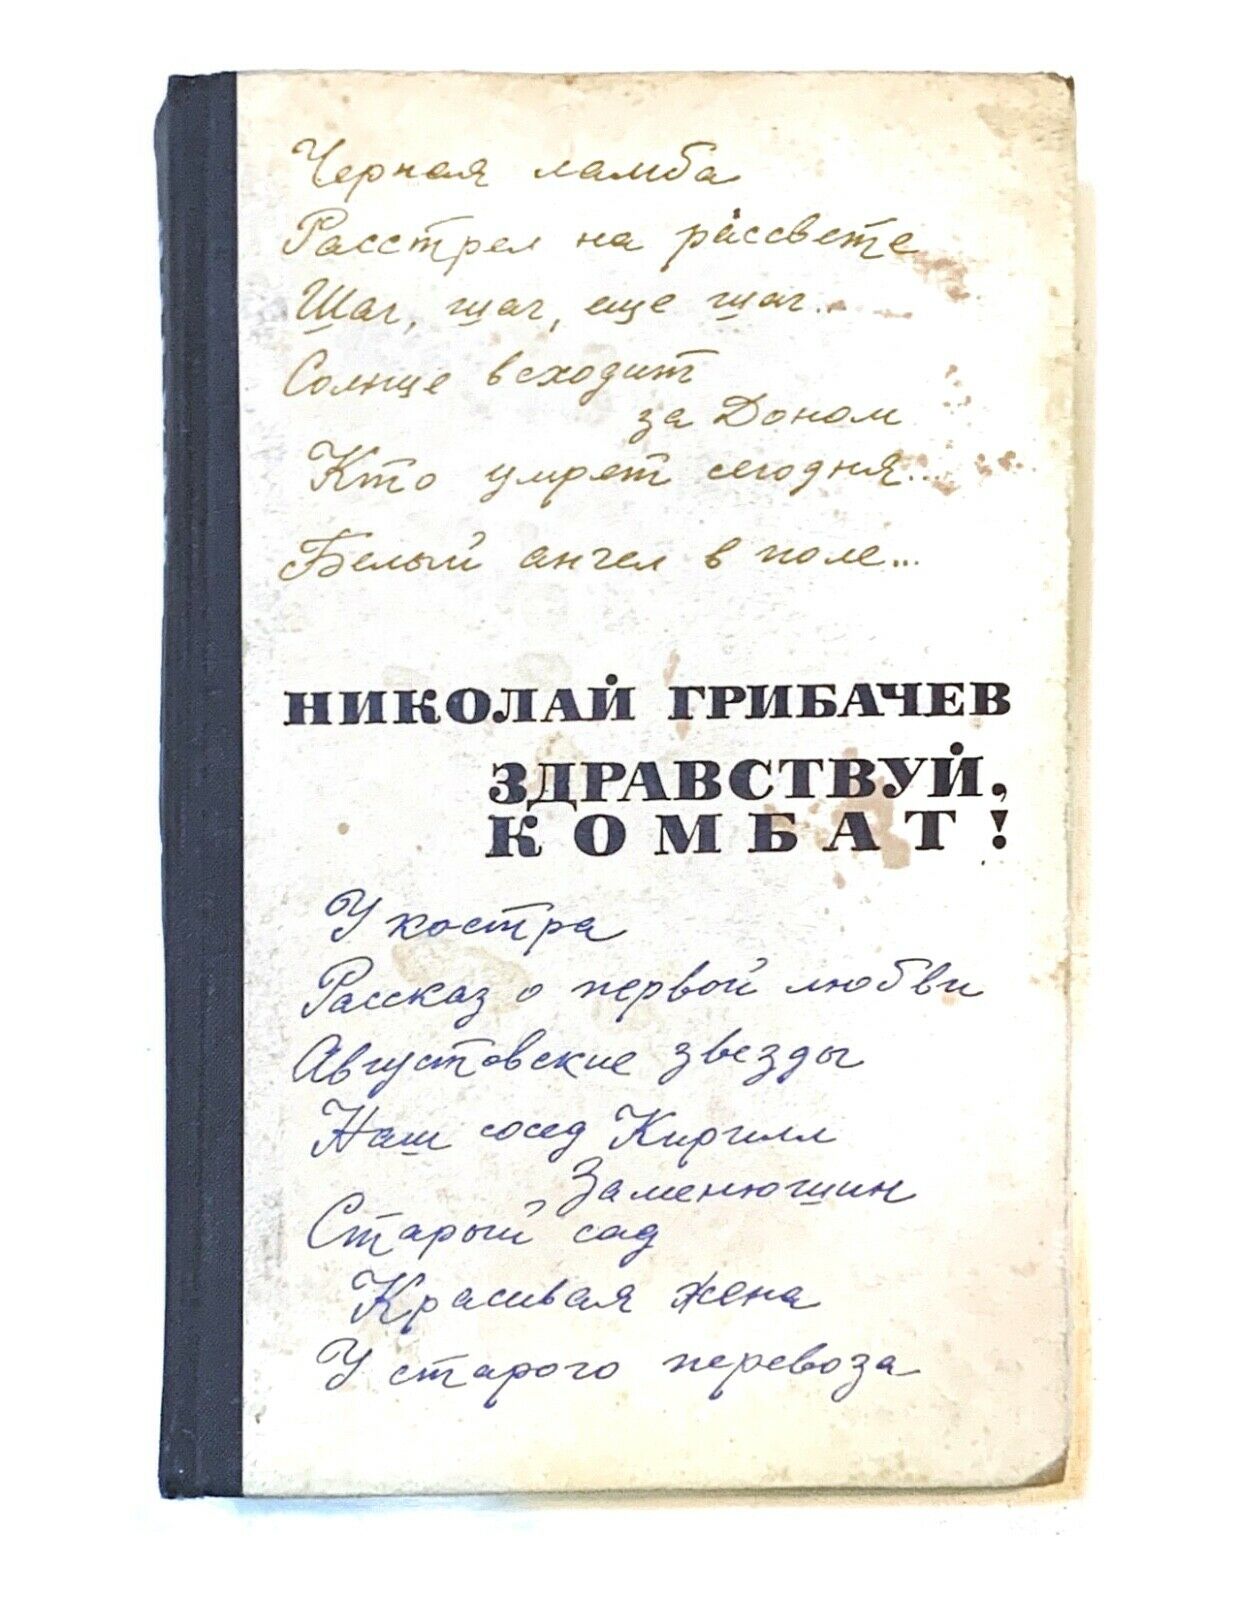 Черная ламба
Расстрел на рассвете
Шаг, шаг, еще шаг...
Солнце всходит
за Доном
Кто умрет сегодня...
Белый ангел в поле...
НИКОЛАЙ ГРИБАЧЕВ
ЗДРАВСТВУЙ,
КОМБАТ!
У костра
Рассказ о первой любви
Августовские звезды
Наш сосед Кирилл
Заменюшин
Старый сад
Красивая жена
У старого перевоза